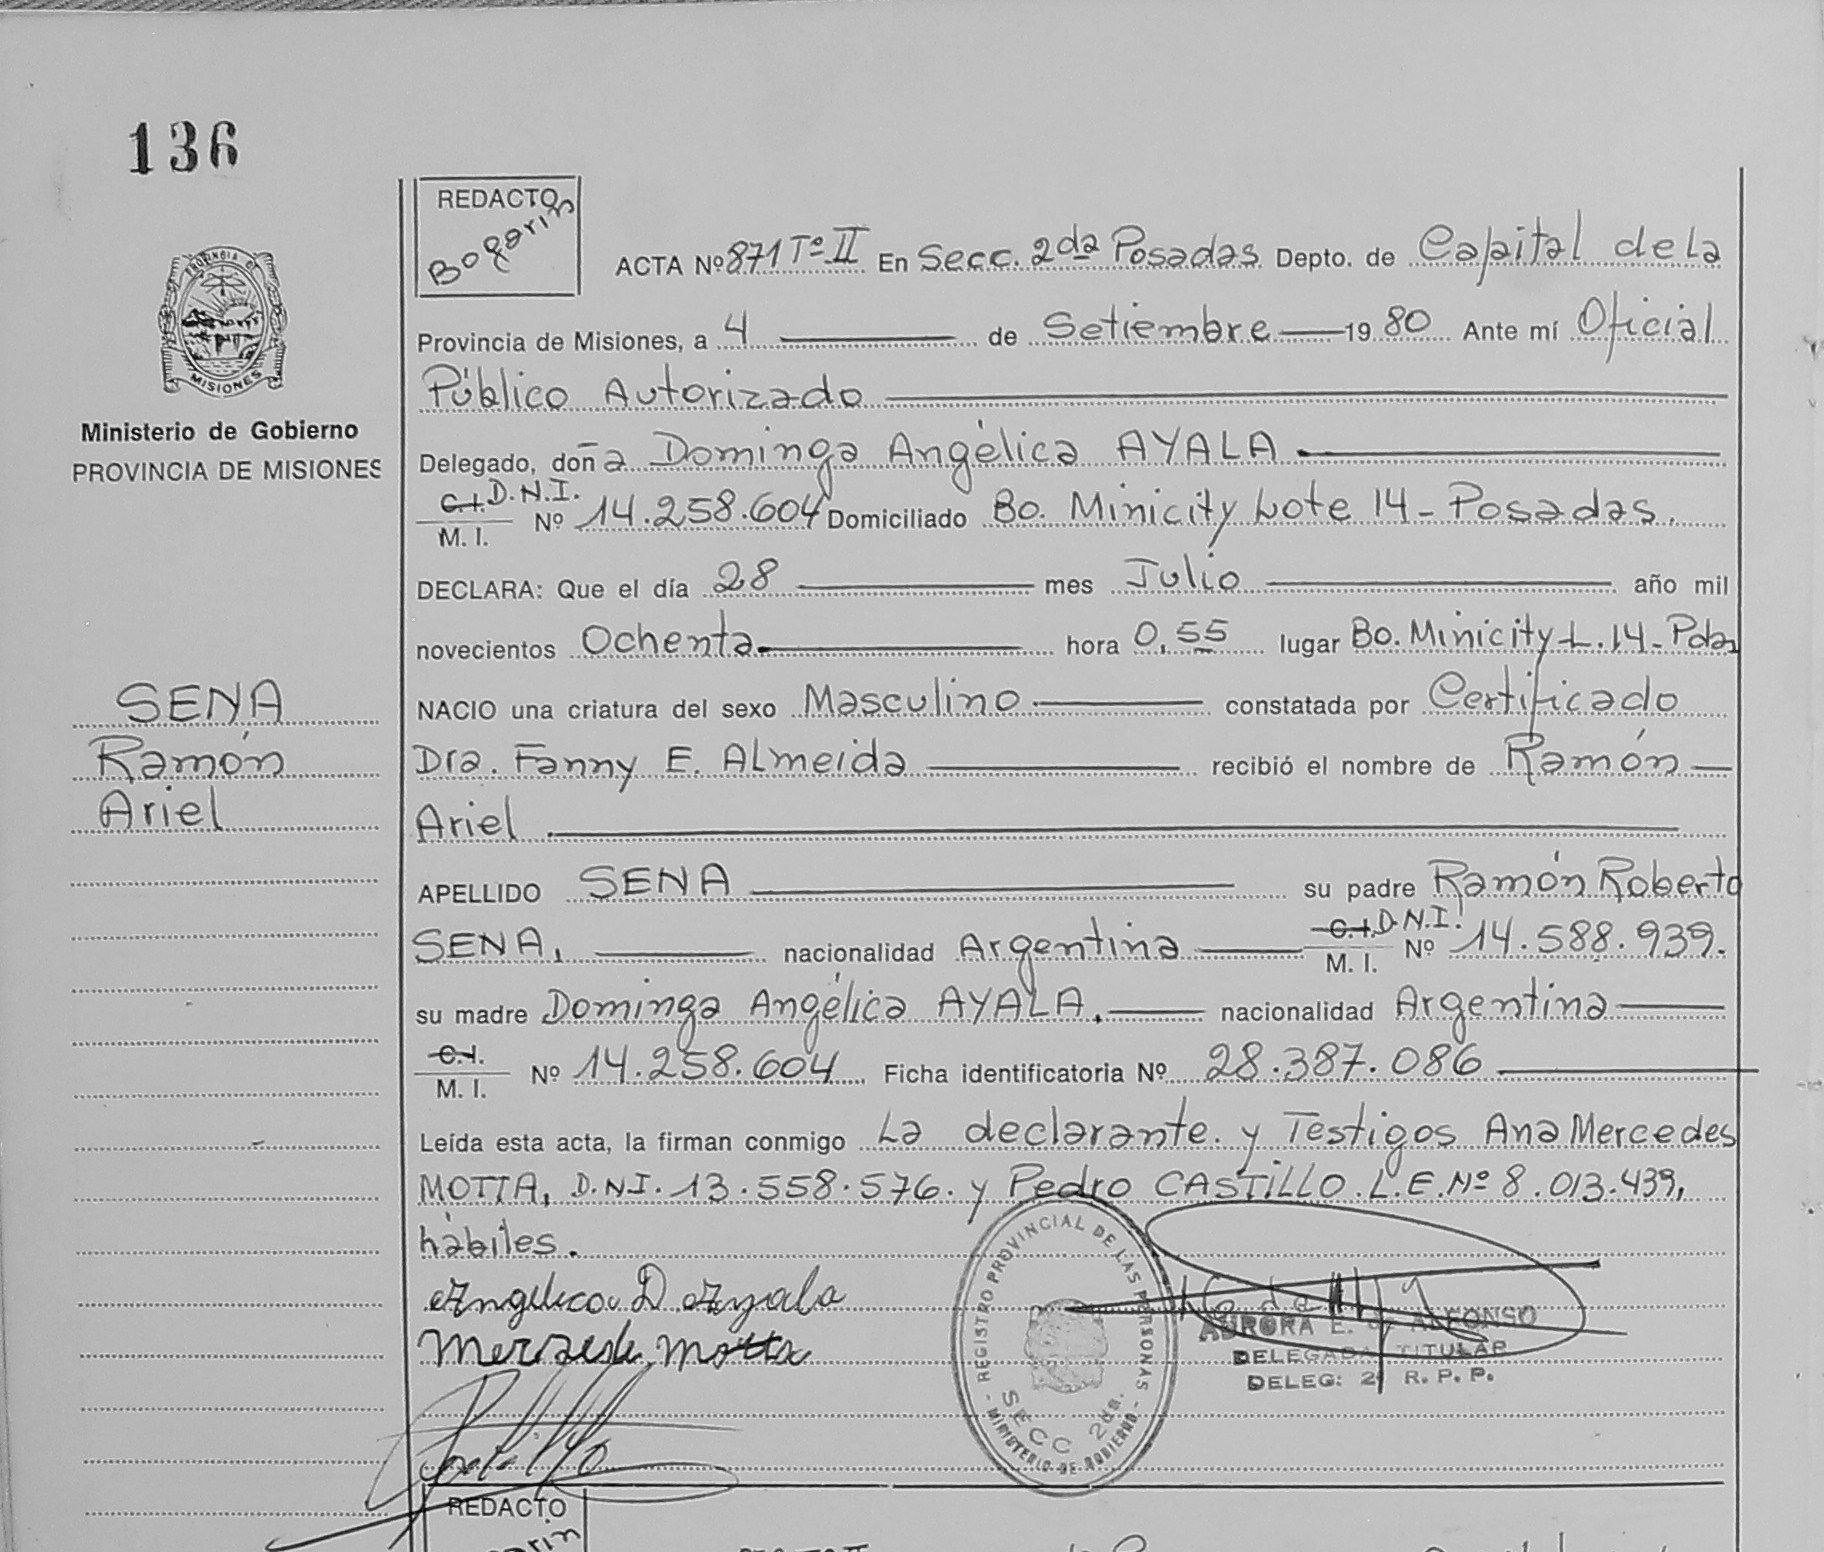 136
REDACTO
Bogarin
ACTA Nº 871 Tº II En Secc. 2da Posadas Depto. de Capital de La
Provincia de Misiones, a 4 de Setiembre 1980 Ante mí Oficial
Público Autorizado
PROVINCIA DE MISIONES
Ministerio de Gobierno
PROVINCIA DE MISIONES
Delegado, doña Dominga Angélica AYALA
C.I. D.N.I.
M. I. Nº 14.258.604 Domiciliado Bo. Minicity Lote 14 - Posadas.
DECLARA: Que el día 28 mes Julio año mil
novecientos Ochenta hora 0,55 lugar Bo. Minicity L. 14 - Pdas
SENA
Ramón
Ariel
NACIO una criatura del sexo Masculino constatada por Certificado
Dra. Fanny E. ALmeida recibió el nombre de Ramón
Ariel
APELLIDO SENA su padre Ramón Roberto
SENA, nacionalidad Argentina C.I. D.N.I. M. I. Nº 14.588.939.
su madre Dominga Angélica AYALA. nacionalidad Argentina
C.I.
M. I. Nº 14.258.604 Ficha identificatoria Nº 28.387.086
Leída esta acta, la firman conmigo La declarante. y Testigos Ana Mercedes
MOTTA, D.N.I. 13.558.576. y Pedro CASTiLLO L.E. Nº 8.013.439,
hábiles.
Angelica D Ayala
Mercedes Motta
REGISTRO PROVINCIAL DE LAS PERSONAS
SECC 2da.
MINISTERIO DE GOBIERNO
AURORA E. de ALFONSO
DELEGADA TITULAR
DELEG: 2 R. P. P.
REDACTO